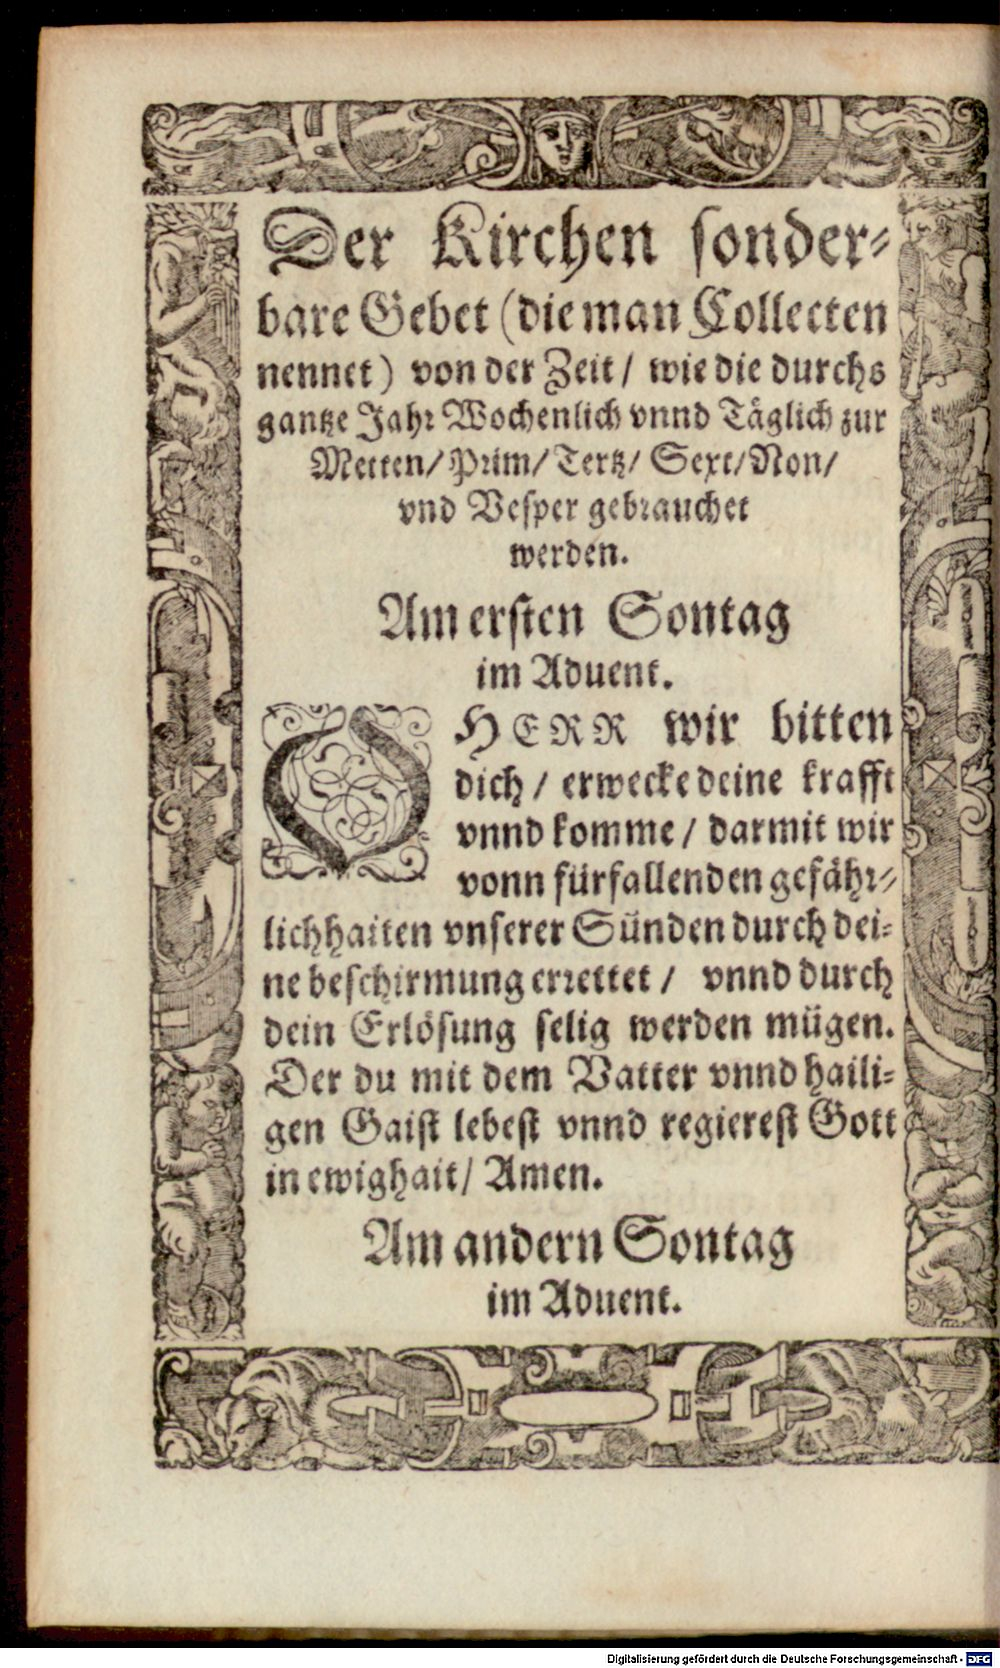 Der Kirchen sonder-
bare Gebet (die man Collecten
nennet) von der Zeit / wie die durchs
gantze Jahr Wochenlich vnnd Täglich zur
Metten / Prim / Tertz / Sext / Non /
vnd Vesper gebrauchet
werden.
Am ersten Sontag
im Aduent.
O HERR wir bitten
dich / erwecke deine krafft
vnnd komme / darmit wir
vonn fürfallenden gefähr-
lichhaiten vnserer Sünden durch dei-
ne beschirmung errettet / vnnd durch
dein Erlösung selig werden mügen.
Der du mit dem Vatter vnnd haili-
gen Gaist lebest vnnd regierest Gott
in ewighait / Amen.
Am andern Sontag
im Aduent.
Digitalisierung gefördert durch die Deutsche Forschungsgemeinschaft - DFG